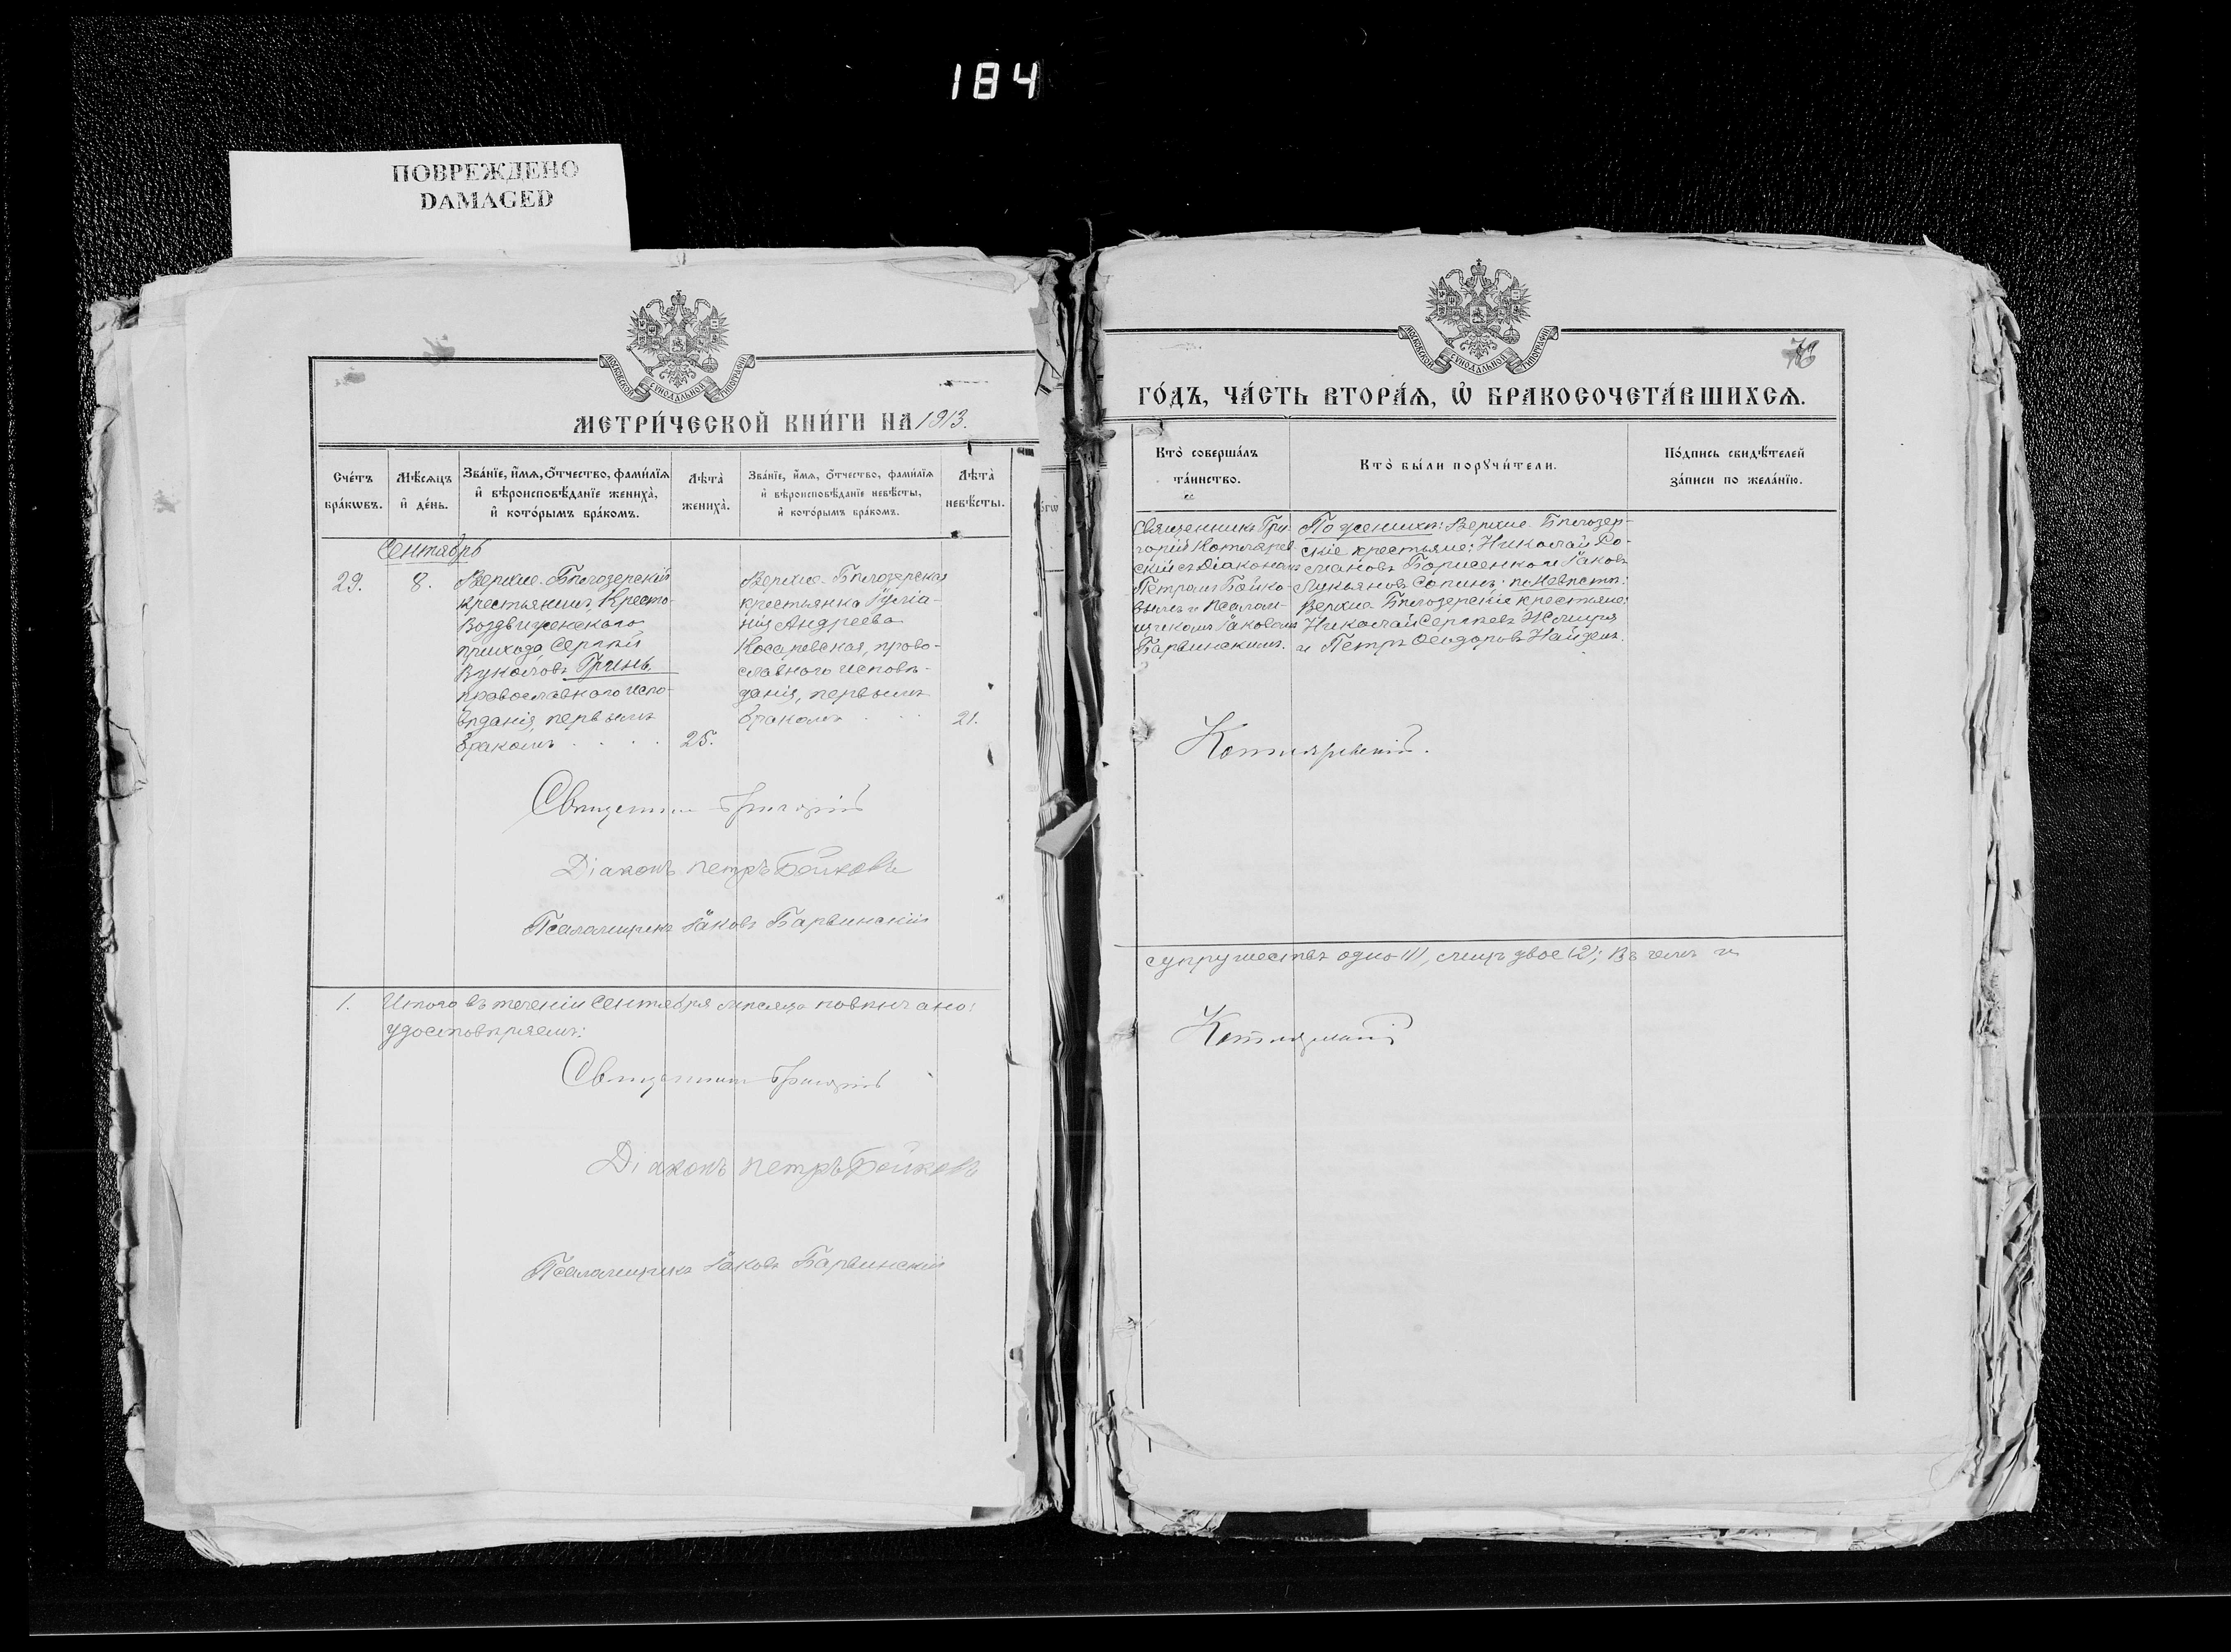 184
ПОВРЕЖДЕНО
DAMAGED
МОСКОВСКОЙ СѴНОДАЛЬНОЙ ТИПОГРАФІИ
МЕТРИ́ЧЕСКОЙ КНИ́ГИ НА 1913.
Сче́тъ бра́кωвъ.
Мѣ́сѧцъ и҆ де́нь.
Зва́нїе, и҆́мѧ, ѻ҆́тчество, фами́лїѧ и҆ вѣроисповѣ́данїе жениха̀, и҆ кото́рымъ бра́комъ.
Лѣ́та̀ жениха̀.
Зва́нїе, и҆́мѧ, ѻ҆́тчество, фами́лїѧ и҆ вѣроисповѣ́данїе невѣ́сты, и҆ кото́рымъ бра́комъ.
Лѣ́та̀ невѣ́сты.
Сентябрь
29.
8.
Верхне-Бѣлозерскій
крестьянинъ Кресто-
Воздвиженскаго
прихода, Сергѣй
Вуколовъ Гринь
православнаго испо-
вѣданія, первымъ
бракомъ . . . .
25.
Верхне-Бѣлозерская
крестьянка Іуліа-
нія Андреева
Косаревская, право-
славного исповѣ-
данія, первымъ
бракомъ . . .
21.
Священникъ Григорій
Діаконъ Петръ Бойковъ
Псаломщикъ Іаковъ Барвинскій
1. Итого въ теченіи Сентября мѣсяца повѣнчано:
удостовѣряемъ:
Священникъ Григорій
Діаконъ Петръ Бойковъ
Псаломщикъ Іаковъ Барвинскій
МОСКОВСКОЙ СѴНОДАЛЬНОЙ ТИПОГРАФІИ
ГО́ДЪ, ЧА́СТЬ ВТОРА́Ѧ, Ѡ҆ БРАКОСОЧЕТА́ВШИХСѦ.
Кто̀ соверша́лъ та́инство.
Кто̀ бы́ли порꙋчи́тели.
По́дпись свидѣ́телей за́писи по жела́нїю.
Священникъ Гри-
горій Котлярев-
скій съ Діакономъ
Петромъ Бойко-
вымъ и Псалом-
щикомъ Іаковомъ
Барвинскимъ.
По женихѣ: Верхне-Бѣлозер-
скіе крестьяне: Николай Ро-
мановъ Борисенко и Іаковъ
Лукьяновъ Сопинъ; по невѣстѣ:
Верхне-Бѣлозерскіе крестьяне:
Николай Сергѣевъ Жмиря
и Петръ Ѳеодоровъ Найденъ.
Котляревскій.
супружествъ одно (1), лицъ двое (2); Въ чемъ и
Котляревскій